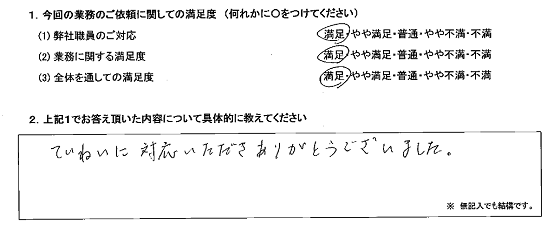 1. 今回の業務のご依頼に関しての満足度 (何れかに○をつけてください)
(1) 弊社職員のご対応 満足・やや満足・普通・やや不満・不満
(2) 業務に関する満足度 満足・やや満足・普通・やや不満・不満
(3) 全体を通しての満足度 満足・やや満足・普通・やや不満・不満
2. 上記1でお答え頂いた内容について具体的に教えてください
ていねいに対応いただきありがとうございました。
※ 無記入でも結構です。